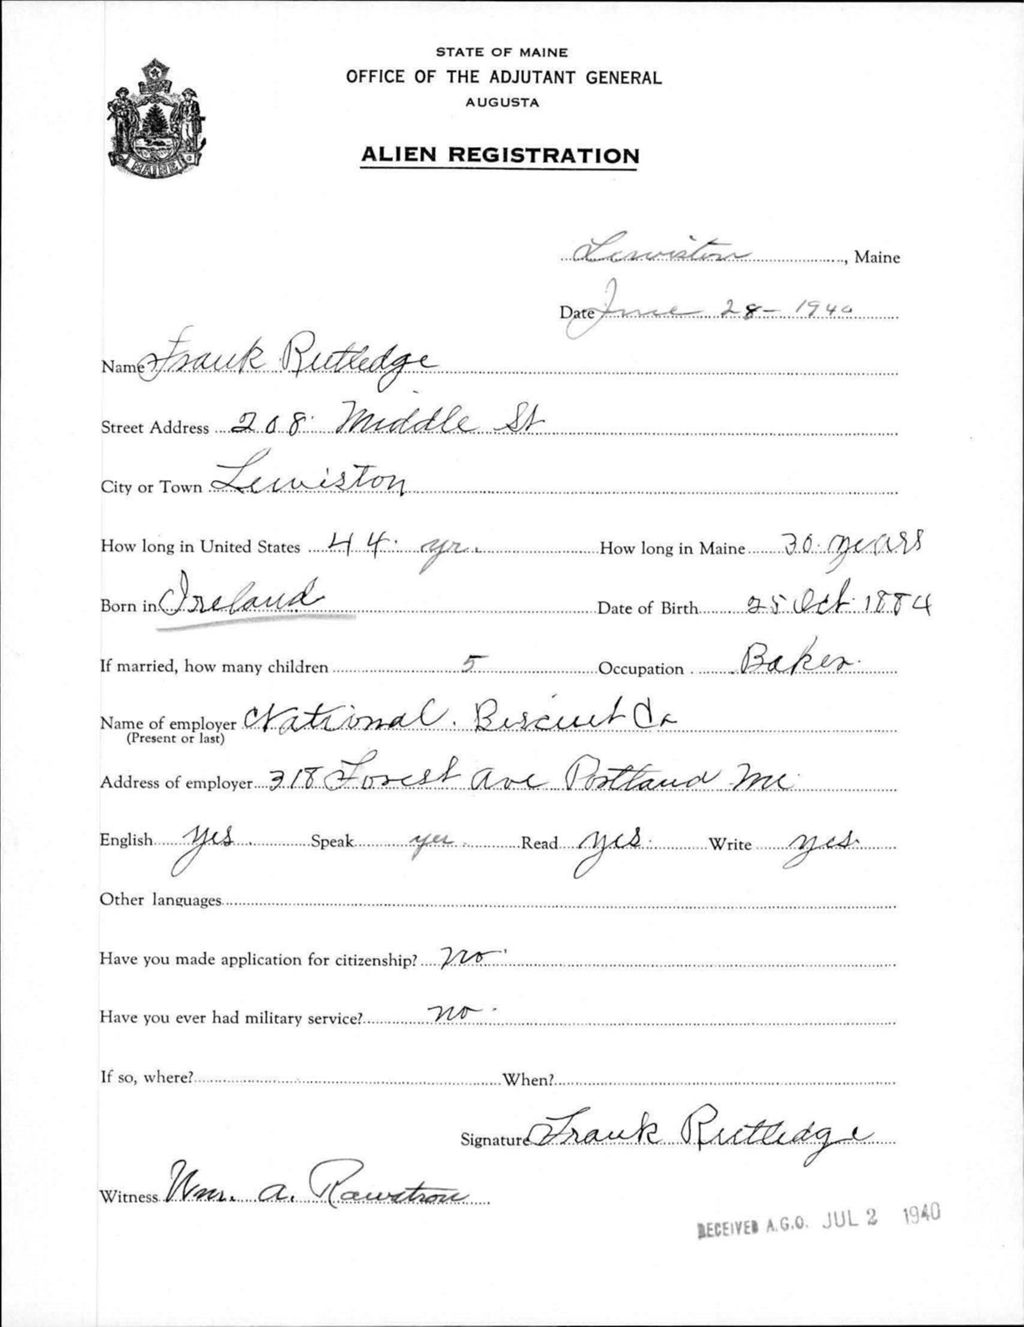 STATE OF MAINE
OFFICE OF THE ADJUTANT GENERAL
AUGUSTA
ALIEN REGISTRATION
MAINE
Lewiston, Maine
Date June 28 - 1940
Name Frank Rutledge
Street Address 208 Middle St
City or Town Lewiston
How long in United States 44 yr. How long in Maine 30 years
Born in Ireland Date of Birth 25 Oct 1884
If married, how many children 5 Occupation Baker
Name of employer National Biscuit Co
(Present or last)
Address of employer 318 Forest Ave Portland Me
English yes Speak yes Read yes Write yes
Other languages
Have you made application for citizenship? no
Have you ever had military service? no
If so, where? When?
Signature Frank Rutledge
Witness Wm. A. Rawstron
RECEIVED A.G.O. JUL 2 1940